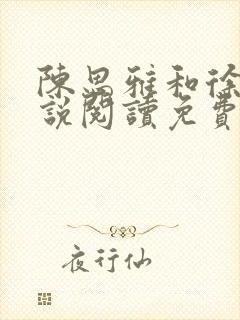 陳思雅和徐
說閱讀免費
夜行仙